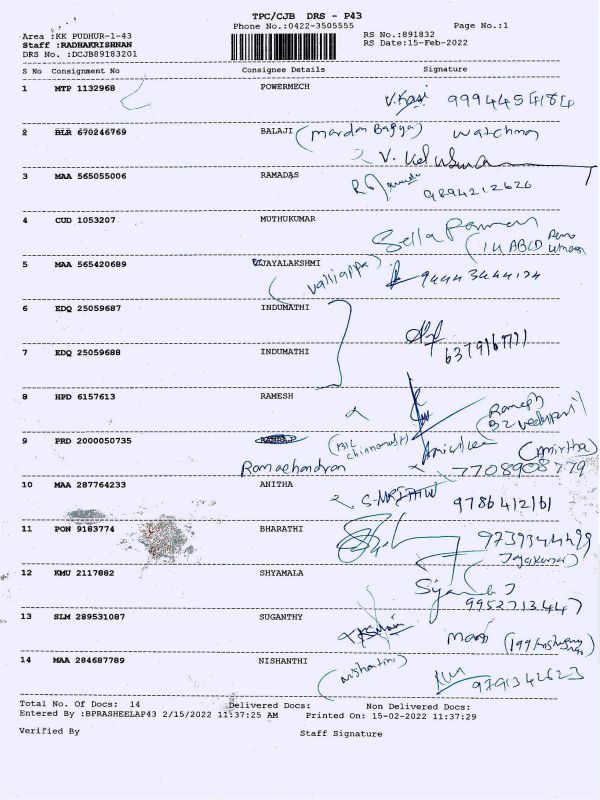 TPC/CJB DRS - P43
Phone No.:0422-3505555 Page No.:1
Area :KK PUDHUR-1-43 RS No.:891832
Staff :RADHAKRISHNAN RS Date:15-Feb-2022
DRS No. :DCJB89183201
S No Consignment No Consignee Details Signature
1 MTP 1132968 POWERMECH
V.Kasi 9994454184
2 BLR 670246769 BALAJI watchman
3 MAA 565055006 RAMADAS
9894212620
4 CUD 1053207 MUTHUKUMAR
5 MAA 565420689 VIJAYALAKSHMI
(Valliappa) 9444344174
6 EDQ 25059687 INDUMATHI
7 EDQ 25059688 INDUMATHI
8 HPD 6157613 RAMESH
Ramesh
9 PRD 2000050735
Ramachandran (Amirtha)
7708908779
10 MAA 287764233 ANITHA
9786412161
11 PON 9183774 BHARATHI
Jayakumar
12 KMU 2117882 SHYAMALA
9952713447
13 SLM 289531087 SUGANTHY
14 MAA 284687789 NISHANTHI
(Nishanthi) 9791342623
Total No. Of Docs: 14 Delivered Docs: Non Delivered Docs:
Entered By :BPRASHEELAP43 2/15/2022 11:37:25 AM Printed On: 15-02-2022 11:37:29
Verified By Staff Signature